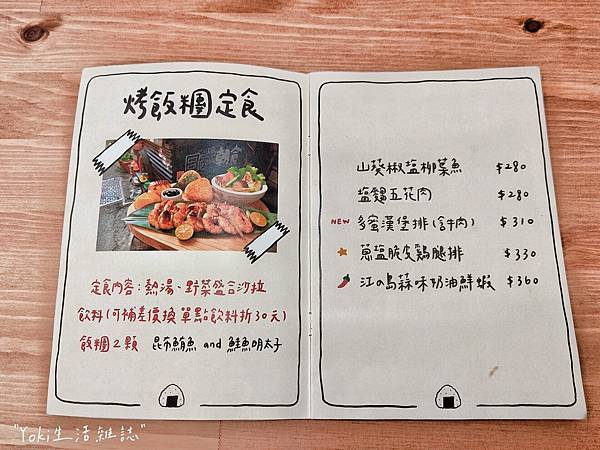 烤飯糰定食
定食內容：熱湯、野菜盛合沙拉
飲料(可補差價換單點飲料折30元)
飯糰2顆 昆布鮪魚 and 鮭魚明太子
山葵椒塩柳葉魚 $280
塩麴五花肉 $280
NEW 多蜜漢堡排(含牛肉) $310
蔥塩脆皮鷄腿排 $330
江の島蒜味奶油鮮蝦 $360
"Yoki生活雜誌"